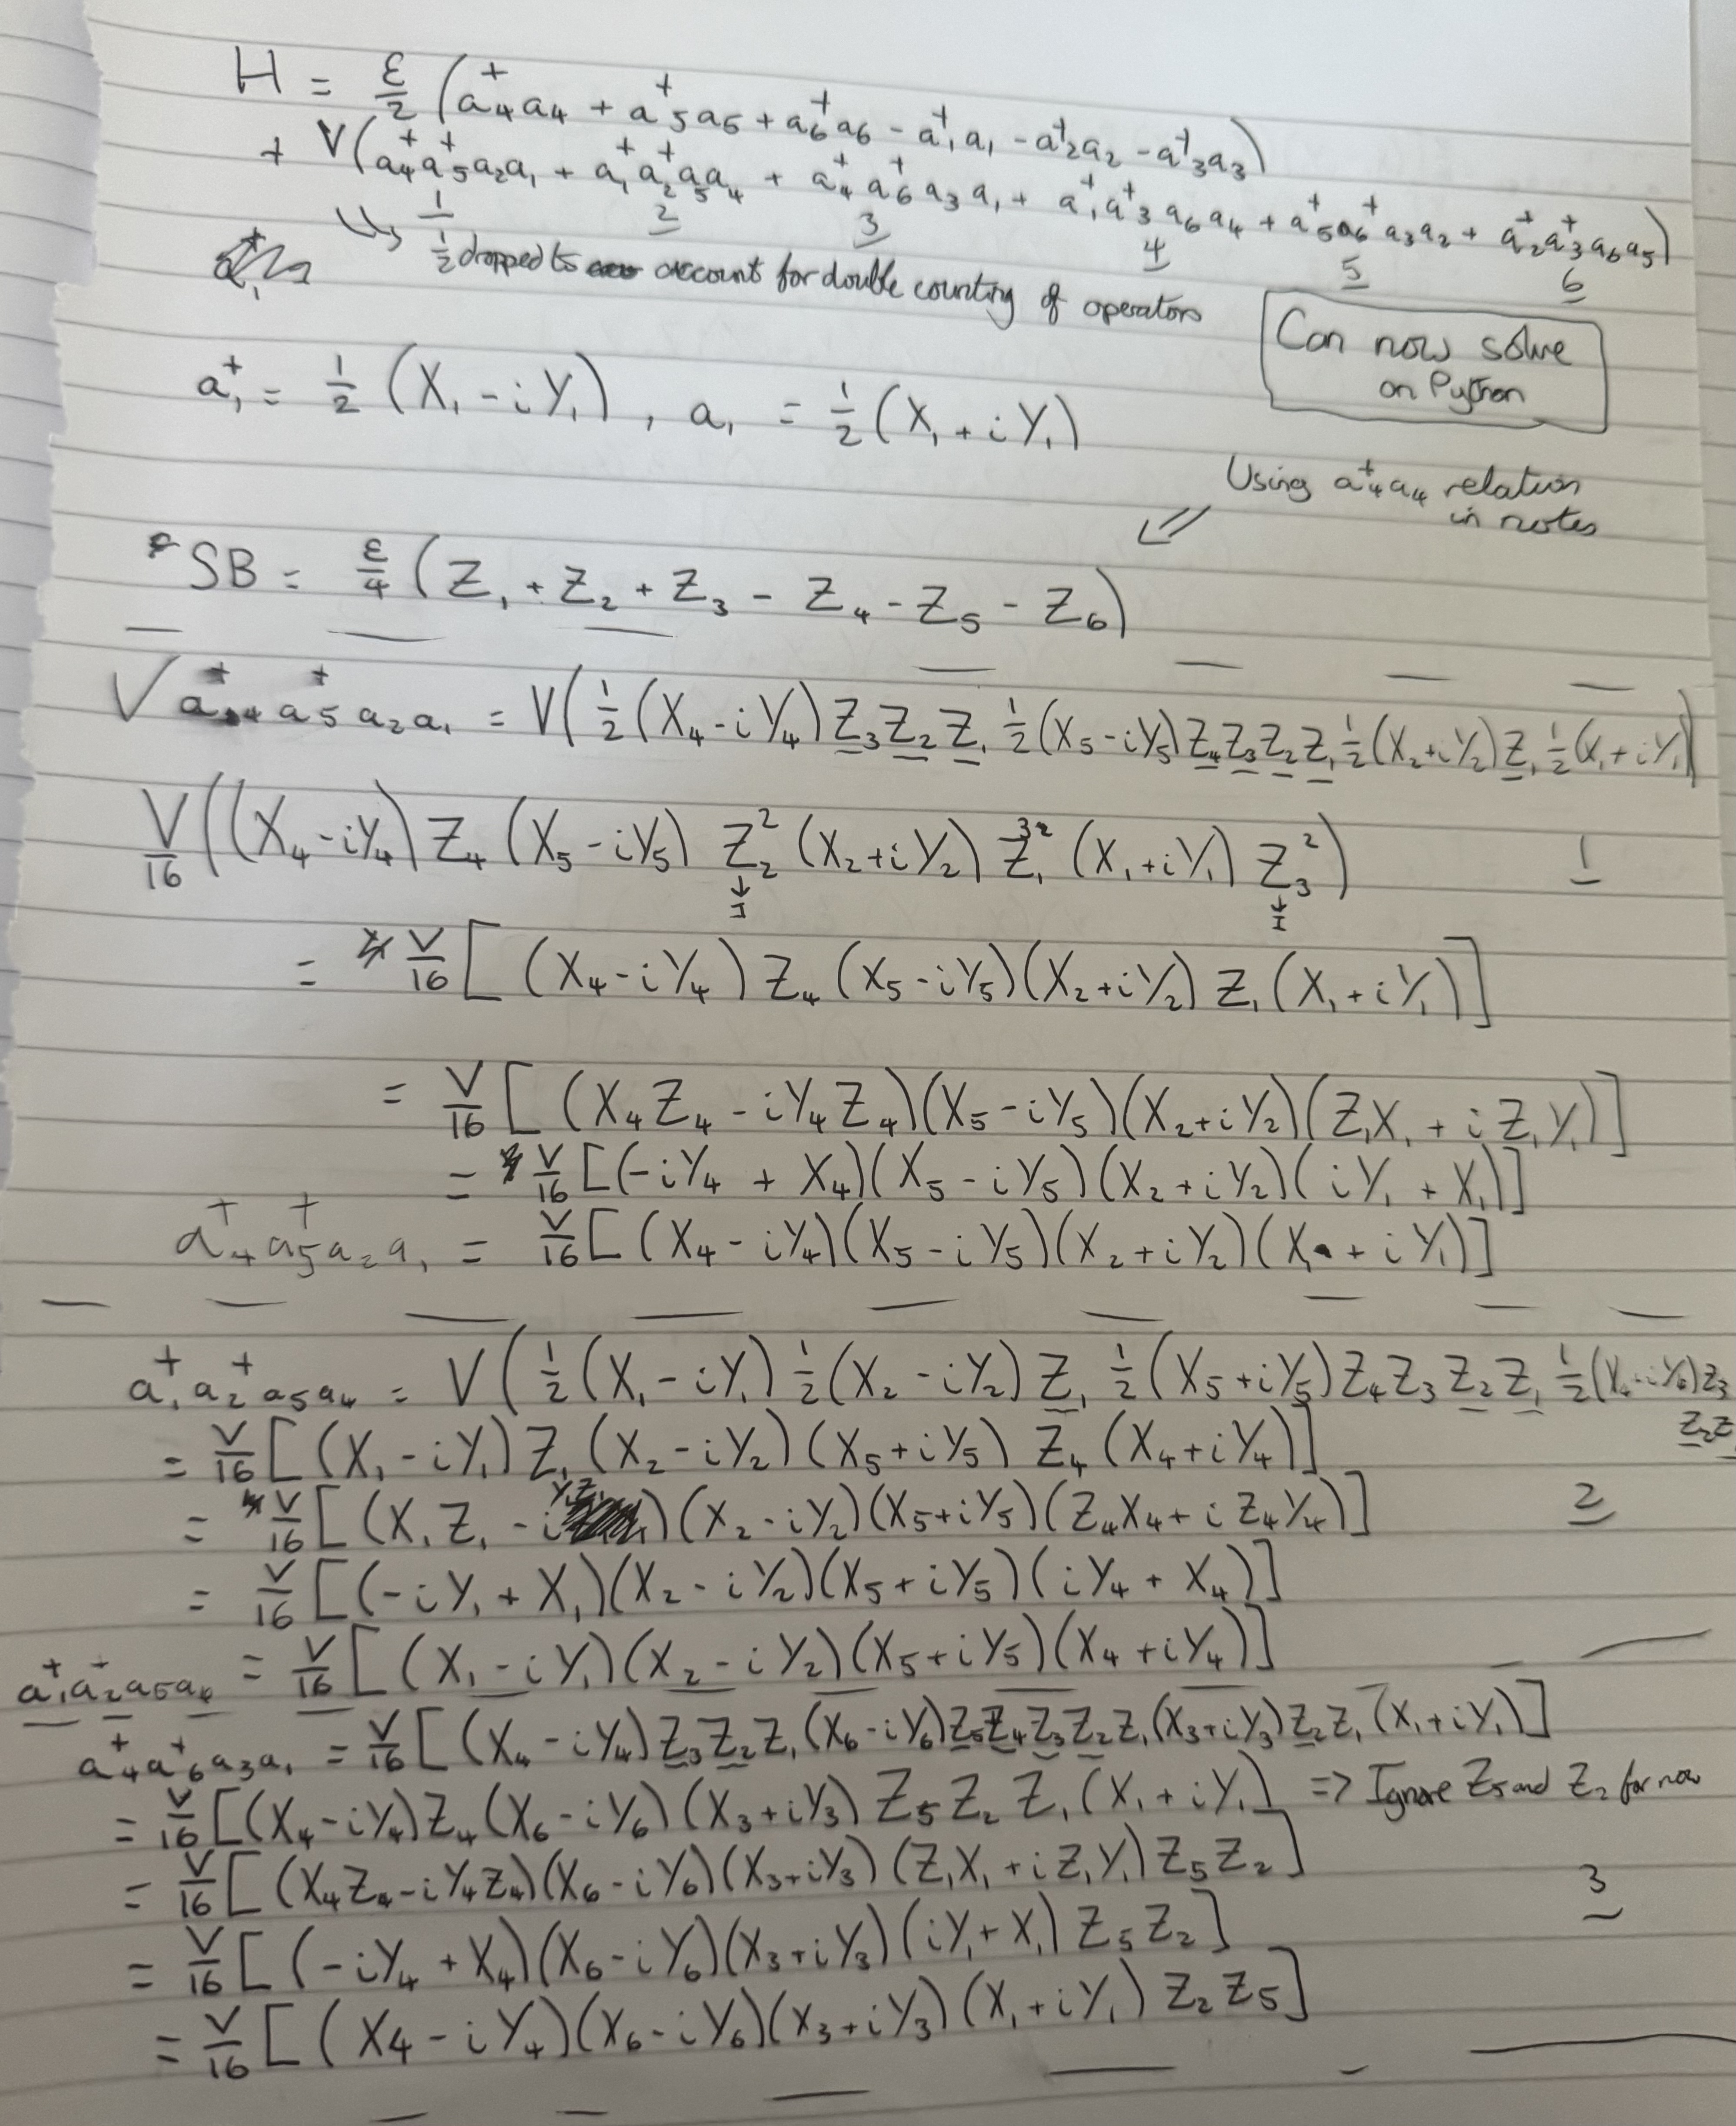 H = ε/2 (a⁺₄a₄ + a⁺₅a₅ + a⁺₆a₆ − a⁺₁a₁ − a⁺₂a₂ − a⁺₃a₃)
+ V(a⁺₄a⁺₅a₂a₁ + a⁺₁a⁺₂a₅a₄ + a⁺₄a⁺₆a₃a₁ + a⁺₁a⁺₃a₆a₄ + a⁺₅a⁺₆a₃a₂ + a⁺₂a⁺₃a₆a₅)
1 2 3 4 5 6
↳ 1/2 dropped to account for double counting of operators
Can now solve
on Python
a⁺₁ = 1/2 (X₁ − iY₁), a₁ = 1/2 (X₁ + iY₁)
Using a⁺₄a₄ relation
in notes
SB = ε/4 (Z₁ + Z₂ + Z₃ − Z₄ − Z₅ − Z₆)
V a⁺₄a⁺₅a₂a₁ = V(1/2(X₄ − iY₄)Z₃Z₂Z₁ 1/2(X₅ − iY₅)Z₄Z₃Z₂Z₁ 1/2(X₂ + iY₂)Z₁ 1/2(X₁ + iY₁))
V/16 ((X₄ − iY₄)Z₄(X₅ − iY₅) Z₂² (X₂ + iY₂) Z₁² (X₁ + iY₁) Z₃²) 1
↓ ↓
I I
= V/16 [(X₄ − iY₄)Z₄(X₅ − iY₅)(X₂ + iY₂)Z₁(X₁ + iY₁)]
= V/16 [(X₄Z₄ − iY₄Z₄)(X₅ − iY₅)(X₂ + iY₂)(Z₁X₁ + iZ₁Y₁)]
= V/16 [(−iY₄ + X₄)(X₅ − iY₅)(X₂ + iY₂)(iY₁ + X₁)]
a⁺₄a⁺₅a₂a₁ = V/16 [(X₄ − iY₄)(X₅ − iY₅)(X₂ + iY₂)(X₁ + iY₁)]
a⁺₁a⁺₂a₅a₄ = V(1/2(X₁ − iY₁) 1/2(X₂ − iY₂)Z₁ 1/2(X₅ + iY₅)Z₄Z₃Z₂Z₁ 1/2(X₄ + iY₄)Z₃
Z₂Z
= V/16 [(X₁ − iY₁)Z₁(X₂ − iY₂)(X₅ + iY₅)Z₄(X₄ + iY₄)]
= V/16 [(X₁Z₁ − iY₁Z₁)(X₂ − iY₂)(X₅ + iY₅)(Z₄X₄ + iZ₄Y₄)] 2
= V/16 [(−iY₁ + X₁)(X₂ − iY₂)(X₅ + iY₅)(iY₄ + X₄)]
a⁺₁a⁺₂a₅a₄ = V/16 [(X₁ − iY₁)(X₂ − iY₂)(X₅ + iY₅)(X₄ + iY₄)]
a⁺₄a⁺₆a₃a₁ = V/16 [(X₄ − iY₄)Z₃Z₂Z₁(X₆ − iY₆)Z₅Z₄Z₃Z₂Z₁(X₃ + iY₃)Z₂Z₁(X₁ + iY₁)]
= V/16 [(X₄ − iY₄)Z₄(X₆ − iY₆)(X₃ + iY₃)Z₅Z₂Z₁(X₁ + iY₁)] => Ignore Z₅ and Z₂ for now
= V/16 [(X₄Z₄ − iY₄Z₄)(X₆ − iY₆)(X₃ + iY₃)(Z₁X₁ + iZ₁Y₁)Z₅Z₂]
3
= V/16 [(−iY₄ + X₄)(X₆ − iY₆)(X₃ + iY₃)(iY₁ + X₁)Z₅Z₂]
= V/16 [(X₄ − iY₄)(X₆ − iY₆)(X₃ + iY₃)(X₁ + iY₁)Z₂Z₅]